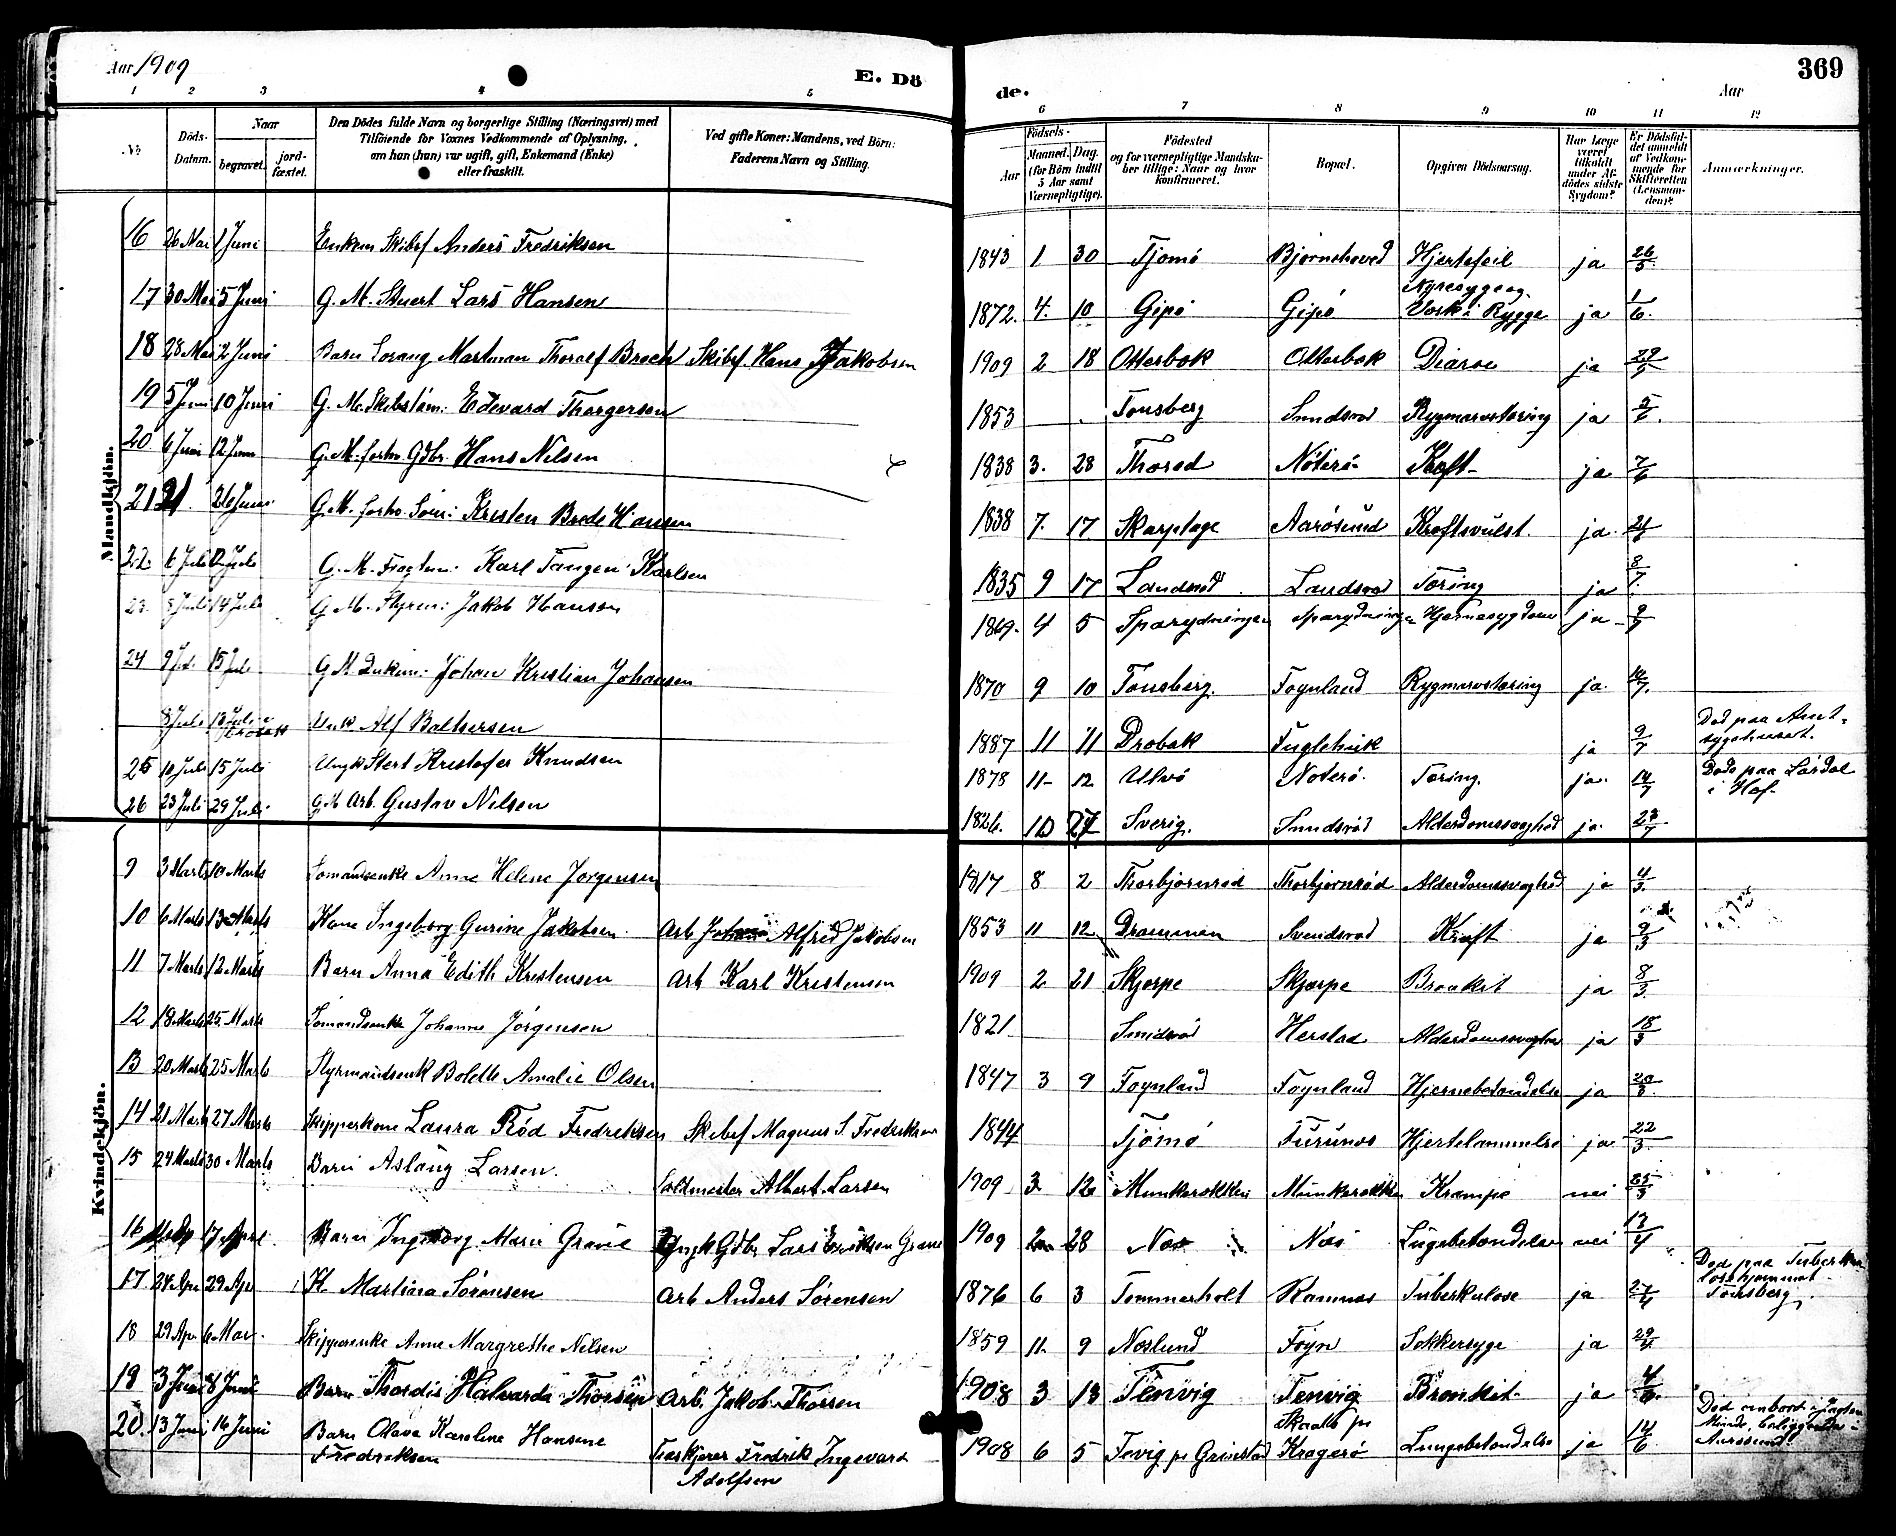 Aar 1909
E. Dö
de.
369
Aar
1 2 3 4 5 6 7 8 9 10 11 12
No
Döds-Datum.
Naar
begravet.
jord-fæstet.
Den Dödes fulde Navn og borgerlige Stilling (Næringsvei) med
Tilföiende for Voxnes Vedkommende af Oplysning,
om han (hun) var ugift, gift, Enkemand (Enke)
eller fraskilt.
Ved gifte Koner: Mandens, ved Börn:
Faderens Navn og Stilling.
Födsels-
Aar
Maaned.
Dag.
(for Börn indtil 5 Aar samt Værnepligtige).
Födested
og for værnepligtige Mandska-
ber tillige: Naar og hvor
konfirmeret.
Bopæl.
Opgiven Dödsaarsag.
Har Læge været tilkaldt under Af-dödes sidste Sygdom?
Er Dödsfal-det anmeldt af Vedkom-mende for Skifteretten (Lensman-den)?
Anmærkninger.
Mandkjön.
16 26 Mai 1 Juni Enkem Skibsf Anders Fredriksen 1843 1 30 Tjømø Bjørnehoved Hjertefeil ja 26/5
17 30 Mai 5 Juni G. M. Stuert Lars Hansen 1872. 4. 10 Gipø Gipø Nyresyge og Værk i Rygge ja 1/6
18 28 Mai 2 Juni Barn Sorang Martman Thoralf Broch Skibsf. Hans Jakobsen 1909 2 18 Otterbæk Otterbæk Diaroe ja 29/5
19 5 Juni 10 Juni G. M. Skibstøm: Edevard Thorgersen 1853 Tønsberg Smidsrød Rygmarvstæring ja 5/6
20 6 Juni 12 Juni G. M. forhv. Gdbr. Hans Nilsen 1838 3. 28 Thorød Nøterø Kræft ja 7/6
21 21. 26 Juni G. M. forhv. Søm: Kristen Brede Hansen 1838 7. 17 Skarphage Aarøsund Kræftsvulst. ja 21/6
22. 6 Juli 12 Juli G. M. Fragtm: Karl Tangen Karlsen 1835 9 17 Landsrød Landsrød Tæring ja 8/7
23. 8 Juli 14 Juli G. M. Styrm: Jakob Hansen 1869. 4 5 Hjernesygdom ja 9/7
24 9 Juli 15 Juli G M Johan Kristian Johansen 1870 9 10 Tønsberg. Føynland Rygmarvstæring ja. 10/7.
8 Juli 13 Juli Ungk Alf Baltsersen 1887 11 11 Drøbak Fuglehuk ja 9/7 Død paa Amt-
sygehuset.
25 10 Juli 15 Juli Ungk Stert Kristofer Knudsen 1878 11 12 Nøterø Tæring. ja. 14/7 Døde paa Lardal
i Hof
26 23 Juli 29 Juli G M Arb. Gustav Nilsen 1826. 10 27 Sverig. Smidsrød Alderdomssvaghed ja. 23/7
Kvindekjön.
9 3 Marts 10 Marts Sømandsenke Anne Helene Jørgensen 1817 8 2 Thorbjørnrød Thorbjørnrød Alderdomssvaghed ja 4/3.
10 6 Marts 13 Marts Kone Ingeborg Gurine Jakobsen Arb Alfred Jakobsen 1853 11 12 Drammen Svendsrød Kræft ja 9/3
11 7 Marts 12 Marts Barn Anna Edith Kristensen Arb Karl Kristensen 1909 2 21 Skjerpe Skjærpe Bronkit ja 8/3.
12 18 Marts 25. Marts Sømandsenke Johanne Jørgensen 1821 Smidsrød Herstad Alderdomssvaghed ja 18/3
13 20 Marts 25 Marts Styrmandsenk Bolette Amalie Olsen 1847 3 9 Føynland Føynland Hjernebetændelse ja 20/3
14 21 Marts 27 Marts Skipperkone Laura Rød Fredriksen Skibsf Magnus S Fredriksen 1844 Tjømø Furunes Hjertelammelse ja 22/3.
15 24 Marts 30 Marts Barn Aslaug Larsen. Soldmester Albert Larsen 1909 3 12 Munkerekken Munkerekken Krampe nei 25/3
16 17 April. Barn Ingeborg Marie Gravie Ungk Gdbr Lars Eriksen Gravie 1909 28 Næs Lugebetændelse nei 13/4
17. 24 Apr 29 Apr K. Martina Sørensen Arb Anders Sørensen 1876 6 3 Tømmerholt Ramnæs Tuberkulose ja 27/4 Død paa Tuberku
losehjemmet
Tønsberg.
18 29 Apr 6 Mai. Skipperenke Anne Margrethe Nilsen 1859 11 9 Noslund Føyn Sokkersyge ja 29/4
19 3 Juni 8 Juni Barn Thordis Halvarda Thorsen Arb. Jakob Thorsen 1908 3 13 Tenvig Tenvig Bronkit ja 4/6
20. 13 Juni 16 Juni Barn Olava Karoline Hansine
Fredriksen Fredrik Ingevard
Adolfsen 1908 6 5 Fevig pr Grimstad Skaatø pr
Kragerø Lungebetændelse ja 14/6 Død ombord i Jagten
beliggende i
Aarøsund